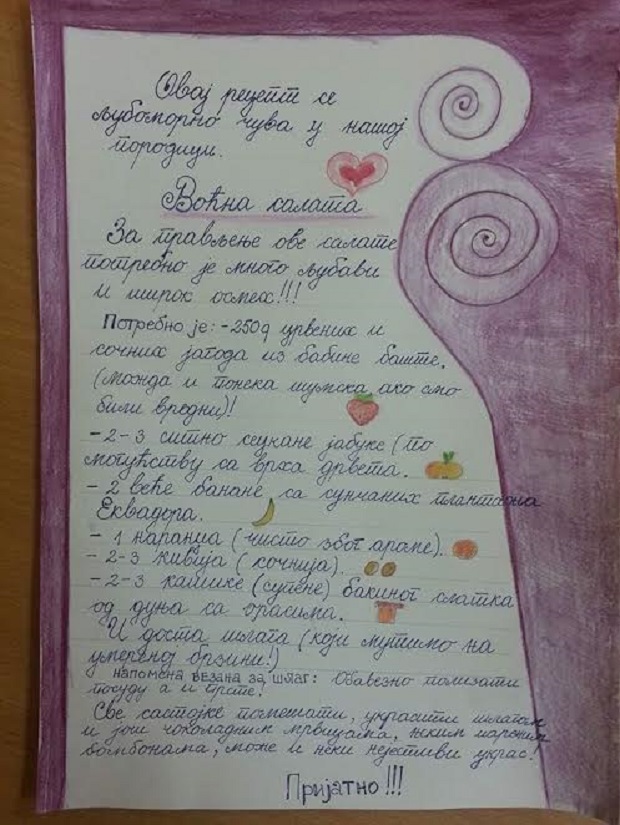 Овај рецепт се
љубоморно чува у нашој
породици.
Воћна салата
За прављење ове салате
потребно је много љубави
и широк осмех!!!
Потребно је: -250g црвених и
сочних јагода из бабине баште.
(можда и понека шумска ако смо
били вредни)!
-2-3 ситно сецкане јабуке (по
могућству са врха дрвета.
- 2 веће банане са сунчаних плантажа
Еквадора.
- 1 наранџа (чисто због ароме).
- 2-3 кивија (сочнија).
-2-3 кашике (супене) бакиног слатка
од дуња са орасима.
И доста шлага (који мутимо на
умереној брзини!)
напомена везана за шлаг: Обавезно полизати
посуду а и прсте!
Све састојке помешати, украсити шлагом
и још чоколадним мрвицама, неким шареним
бомбонама, може и неки нејестиви украс!
Пријатно!!!